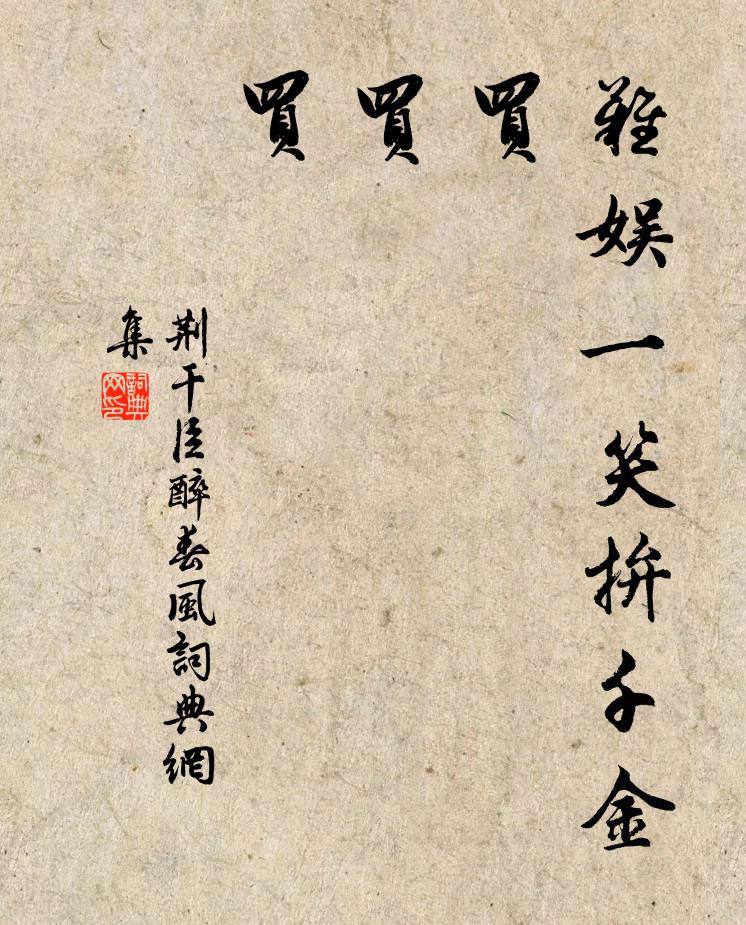 難娛一笑拚千金
買
買
買
荆干臣醉春風詞典網
集
詞典
网印